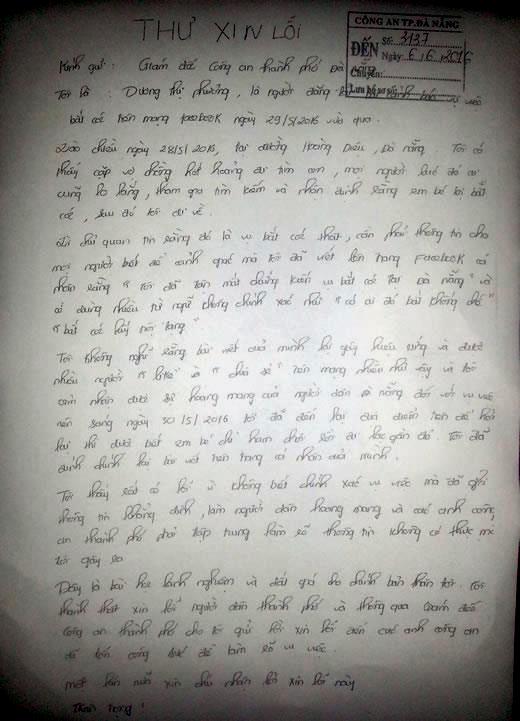 THƯ XIN LỖI
CÔNG AN TP.ĐÀ NẴNG
ĐẾN Số: 3137
Ngày: 6, 6, 2016
Chuyển:
Lưu hồ sơ số:
Kính gửi: Giám đốc Công an thành phố Đà
Tôi là: Dương thị phương, là người đăng vụ việc
bắt cóc trên mạng facebook ngày 29/5/2016 vừa qua.
Vào chiều ngày 28/5/2016, tại đường Hoàng Diệu, Đà nẵng. Tôi có
thấy cặp vợ chồng hốt hoảng đi tìm con, mọi người lúc đó ai
cũng lo lắng, tham gia tìm kiếm và nhận định rằng em bé bị bắt
cóc, sau đó tôi đi về.
Vì chủ quan tin rằng đó là vụ bắt cóc thật, cần phải thông tin cho
mọi người biết để cảnh giác mà tôi đã viết lên trang Facebook cá
nhân rằng "Tôi đã tận mắt chứng kiến vụ bắt cóc tại Đà nẵng" và
có dùng nhiều từ ngữ không chính xác như "có ai đó bắt không chớ"
"bắt cóc lấy nội tạng"
Tôi không nghĩ rằng bài viết của mình lại gây hiệu ứng và được
nhiều người "like" và "chia sẻ" trên mạng nhiều như vậy và tôi
cảm nhận được sự hoang mang của người dân Đà nẵng đối với vụ việc
nên sáng ngày 30/5/2016 tôi đã đến lại địa điểm trên để hỏi
lại thì được biết em bé chỉ ham chơi nên đi lạc gần đó. Tôi đã
đính chính lại bài viết trên trang cá nhân của mình.
Tôi thấy rất có lỗi vì không biết chính xác vụ việc mà đã ghi
thông tin khẳng định, làm người dân hoang mang và các anh công
an thành phố phải tập trung làm rõ thông tin không có thực mà
tôi gây ra
Đây là bài học kinh nghiệm và đắt giá cho chính bản thân tôi. Tôi
thành thật xin lỗi người dân thành phố và thông qua Giám đốc
Công an thành phố cho tôi gửi lời xin lỗi đến các anh công an
đã tốn công sức để làm rõ vụ việc.
một lần nữa xin chú nhận lời xin lỗi này
Trân trọng!